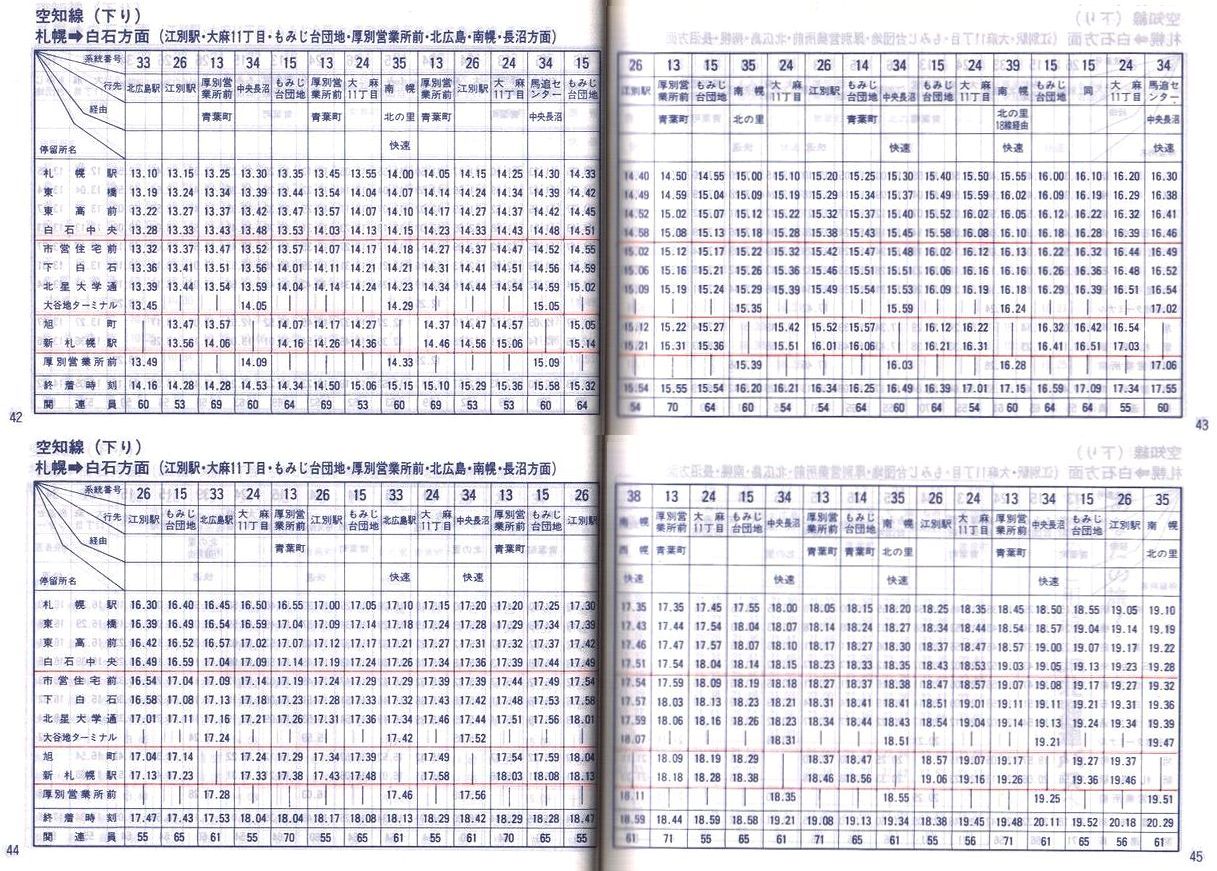 空知線（下り）
札幌➡白石方面（江別駅・大麻11丁目・もみじ台団地・厚別営業所前・北広島・南幌・長沼方面）
系統番号 33 26 13 34 15 13 24 35 13 26 24 34 15
行先 北広島駅 江別駅 厚別営業所前 中央長沼 もみじ台団地 厚別営業所前 大麻11丁目 南幌 厚別営業所前 江別駅 大麻11丁目 馬追センター もみじ台団地
経由 青葉町 青葉町 北の里 青葉町 中央長沼
停留所名 快速
札幌駅 13.10 13.15 13.25 13.30 13.35 13.45 13.55 14.00 14.05 14.15 14.25 14.30 14.33
東橋 13.19 13.24 13.34 13.39 13.44 13.54 14.04 14.07 14.14 14.24 14.34 14.39 14.42
東高前 13.22 13.27 13.37 13.42 13.47 13.57 14.07 14.10 14.17 14.27 14.37 14.42 14.45
白石中央 13.28 13.33 13.43 13.48 13.53 14.03 14.13 14.15 14.23 14.33 14.43 14.48 14.51
市営住宅前 13.32 13.37 13.47 13.52 13.57 14.07 14.17 14.18 14.27 14.37 14.47 14.52 14.55
下白石 13.36 13.41 13.51 13.56 14.01 14.11 14.21 14.21 14.31 14.41 14.51 14.56 14.59
北星大学通 13.39 13.44 13.54 13.59 14.04 14.14 14.24 14.23 14.34 14.44 14.54 14.59 15.02
大谷地ターミナル 13.45 | | 14.05 | | | 14.29 | | | 15.05 |
旭町 13.47 13.57 | 14.07 14.17 14.27 | 14.37 14.47 14.57 | 15.05
新札幌駅 13.56 14.06 | 14.16 14.26 14.36 | 14.46 14.56 15.06 | 15.14
厚別営業所前 13.49 | | 14.09 | | | 14.33 | | | 15.09 |
終着時刻 14.16 14.28 14.28 14.53 14.34 14.50 15.06 15.15 15.10 15.29 15.36 15.58 15.32
関連員 60 53 69 60 64 69 53 60 69 53 53 60 64
42
26 13 15 35 24 26 14 34 15 24 39 15 15 24 34
江別駅 厚別営業所前 もみじ台団地 南幌 大麻11丁目 江別駅 もみじ台団地 中央長沼 もみじ台団地 大麻11丁目 南幌 もみじ台団地 同 大麻11丁目 馬追センター
青葉町 北の里 青葉町 北の里18線経由 中央長沼
快速 快速 快速
14.40 14.50 14.55 15.00 15.10 15.20 15.25 15.30 15.40 15.50 15.55 16.00 16.10 16.20 16.30
14.49 14.59 15.04 15.09 15.19 15.29 15.34 15.37 15.49 15.59 16.02 16.09 16.19 16.29 16.38
14.52 15.02 15.07 15.12 15.22 15.32 15.37 15.40 15.52 16.02 16.05 16.12 16.22 16.32 16.41
14.58 15.08 15.13 15.18 15.28 15.38 15.43 15.45 15.58 16.08 16.10 16.18 16.28 16.39 16.46
15.02 15.12 15.17 15.22 15.32 15.42 15.47 15.48 16.02 16.12 16.13 16.22 16.32 16.44 16.49
15.06 15.16 15.21 15.26 15.36 15.46 15.51 15.51 16.06 16.16 16.16 16.26 16.36 16.48 16.52
15.09 15.19 15.24 15.29 15.39 15.49 15.54 15.53 16.09 16.19 16.18 16.29 16.39 16.51 16.54
| | | 15.35 | | | 15.59 | | 16.24 | | | 17.02
15.12 15.22 15.27 | 15.42 15.52 15.57 | 16.12 16.22 | 16.32 16.42 16.54 |
15.21 15.31 15.36 | 15.51 16.01 16.06 | 16.21 16.31 | 16.41 16.51 17.03 |
| | | 15.39 | | | 16.03 | | 16.28 | | | 17.06
15.54 15.55 15.54 16.20 16.21 16.34 16.25 16.49 16.39 17.01 17.15 16.59 17.09 17.34 17.55
54 70 64 60 54 54 64 60 64 54 60 64 64 55 60
43
空知線（下り）
札幌➡白石方面（江別駅・大麻11丁目・もみじ台団地・厚別営業所前・北広島・南幌・長沼方面）
系統番号 26 15 33 24 13 26 15 33 24 34 13 15 26
行先 江別駅 もみじ台団地 北広島駅 大麻11丁目 厚別営業所前 江別駅 もみじ台団地 北広島駅 大麻11丁目 中央長沼 厚別営業所前 もみじ台団地 江別駅
経由 青葉町 青葉町
停留所名 快速 快速
札幌駅 16.30 16.40 16.45 16.50 16.55 17.00 17.05 17.10 17.15 17.20 17.20 17.25 17.30
東橋 16.39 16.49 16.54 16.59 17.04 17.09 17.14 17.18 17.24 17.28 17.29 17.34 17.39
東高前 16.42 16.52 16.57 17.02 17.07 17.12 17.17 17.21 17.27 17.31 17.32 17.37 17.42
白石中央 16.49 16.59 17.04 17.09 17.14 17.19 17.24 17.26 17.34 17.36 17.39 17.44 17.49
市営住宅前 16.54 17.04 17.09 17.14 17.19 17.24 17.29 17.29 17.39 17.39 17.44 17.49 17.54
下白石 16.58 17.08 17.13 17.18 17.23 17.28 17.33 17.32 17.43 17.42 17.48 17.53 17.58
北星大学通 17.01 17.11 17.16 17.21 17.26 17.31 17.36 17.34 17.46 17.44 17.51 17.56 18.01
大谷地ターミナル | | 17.24 | | | | 17.42 | 17.52 | | |
旭町 17.04 17.14 | 17.24 17.29 17.34 17.39 | 17.49 | 17.54 17.59 18.04
新札幌駅 17.13 17.23 | 17.33 17.38 17.43 17.48 | 17.58 | 18.03 18.08 18.13
厚別営業所前 | | 17.28 | | | | 17.46 | 17.56 | | |
終着時刻 17.47 17.43 17.53 18.04 18.04 18.17 18.08 18.13 18.29 18.42 18.29 18.28 18.47
関連員 55 65 61 55 70 55 65 61 55 61 70 65 55
44
38 13 24 15 34 13 14 35 26 24 13 34 15 26 35
南幌 厚別営業所前 大麻11丁目 もみじ台団地 中央長沼 厚別営業所前 もみじ台団地 南幌 江別駅 大麻11丁目 厚別営業所前 中央長沼 もみじ台団地 江別駅 南幌
西幌 青葉町 青葉町 青葉町 北の里 青葉町 北の里
快速 快速 快速 快速
17.35 17.35 17.45 17.55 18.00 18.05 18.15 18.20 18.25 18.35 18.45 18.50 18.55 19.05 19.10
17.43 17.44 17.54 18.04 18.07 18.14 18.24 18.27 18.34 18.44 18.54 18.57 19.04 19.14 19.19
17.46 17.47 17.57 18.08 18.10 18.17 18.28 18.30 18.37 18.47 18.57 19.00 19.07 19.17 19.22
17.51 17.54 18.04 18.14 18.15 18.23 18.33 18.35 18.43 18.53 19.03 19.05 19.13 19.23 19.28
17.54 17.59 18.09 18.19 18.18 18.27 18.37 18.38 18.47 18.57 19.07 19.08 19.17 19.27 19.32
17.57 18.03 18.13 18.23 18.21 18.31 18.41 18.41 18.51 19.01 19.11 19.11 19.21 19.31 19.36
17.59 18.06 18.16 18.26 18.23 18.34 18.44 18.43 18.54 19.04 19.14 19.13 19.24 19.34 19.39
18.07 | | | 18.31 | | 18.51 | | | 19.21 | | 19.47
| 18.09 18.19 18.29 | 18.37 18.47 | 18.57 19.07 19.17 | 19.27 19.37 |
| 18.18 18.28 18.38 | 18.46 18.56 | 19.06 19.16 19.26 | 19.36 19.46 |
18.11 | | | 18.35 | | 18.55 | | | 19.25 | | 19.51
18.59 18.44 18.59 18.58 19.21 19.08 19.13 19.34 19.38 19.45 19.48 20.11 19.52 20.18 20.29
61 71 55 65 61 71 65 61 55 56 71 61 65 56 61
45